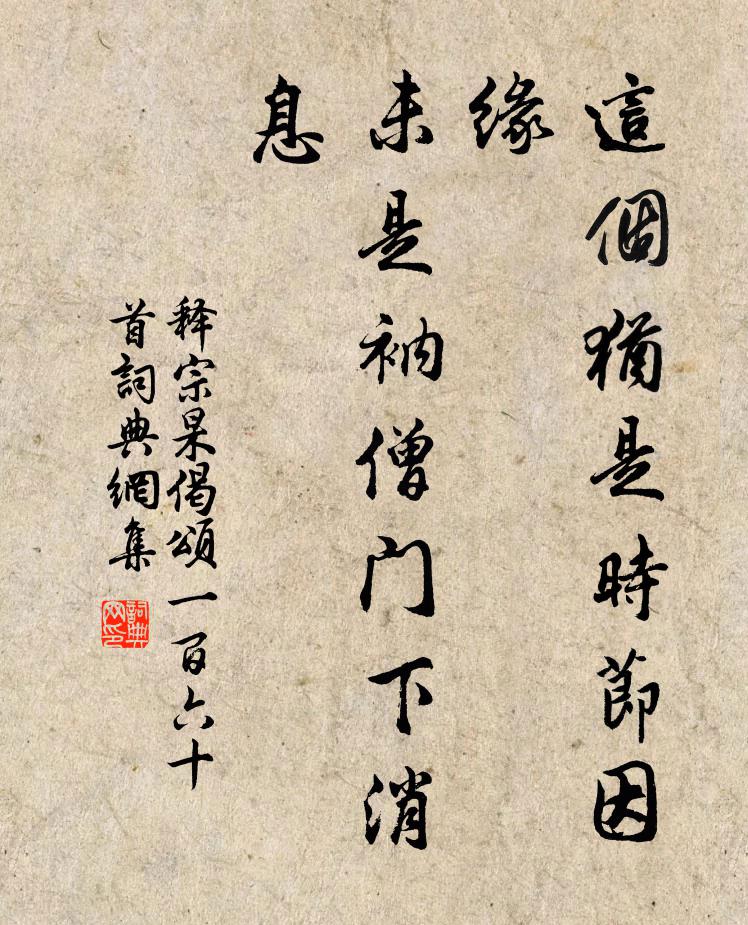 這個猶是時節因
緣
未是衲僧門下消
息
释宗杲偈頌一百六十
首詞典網集
詞典
网印